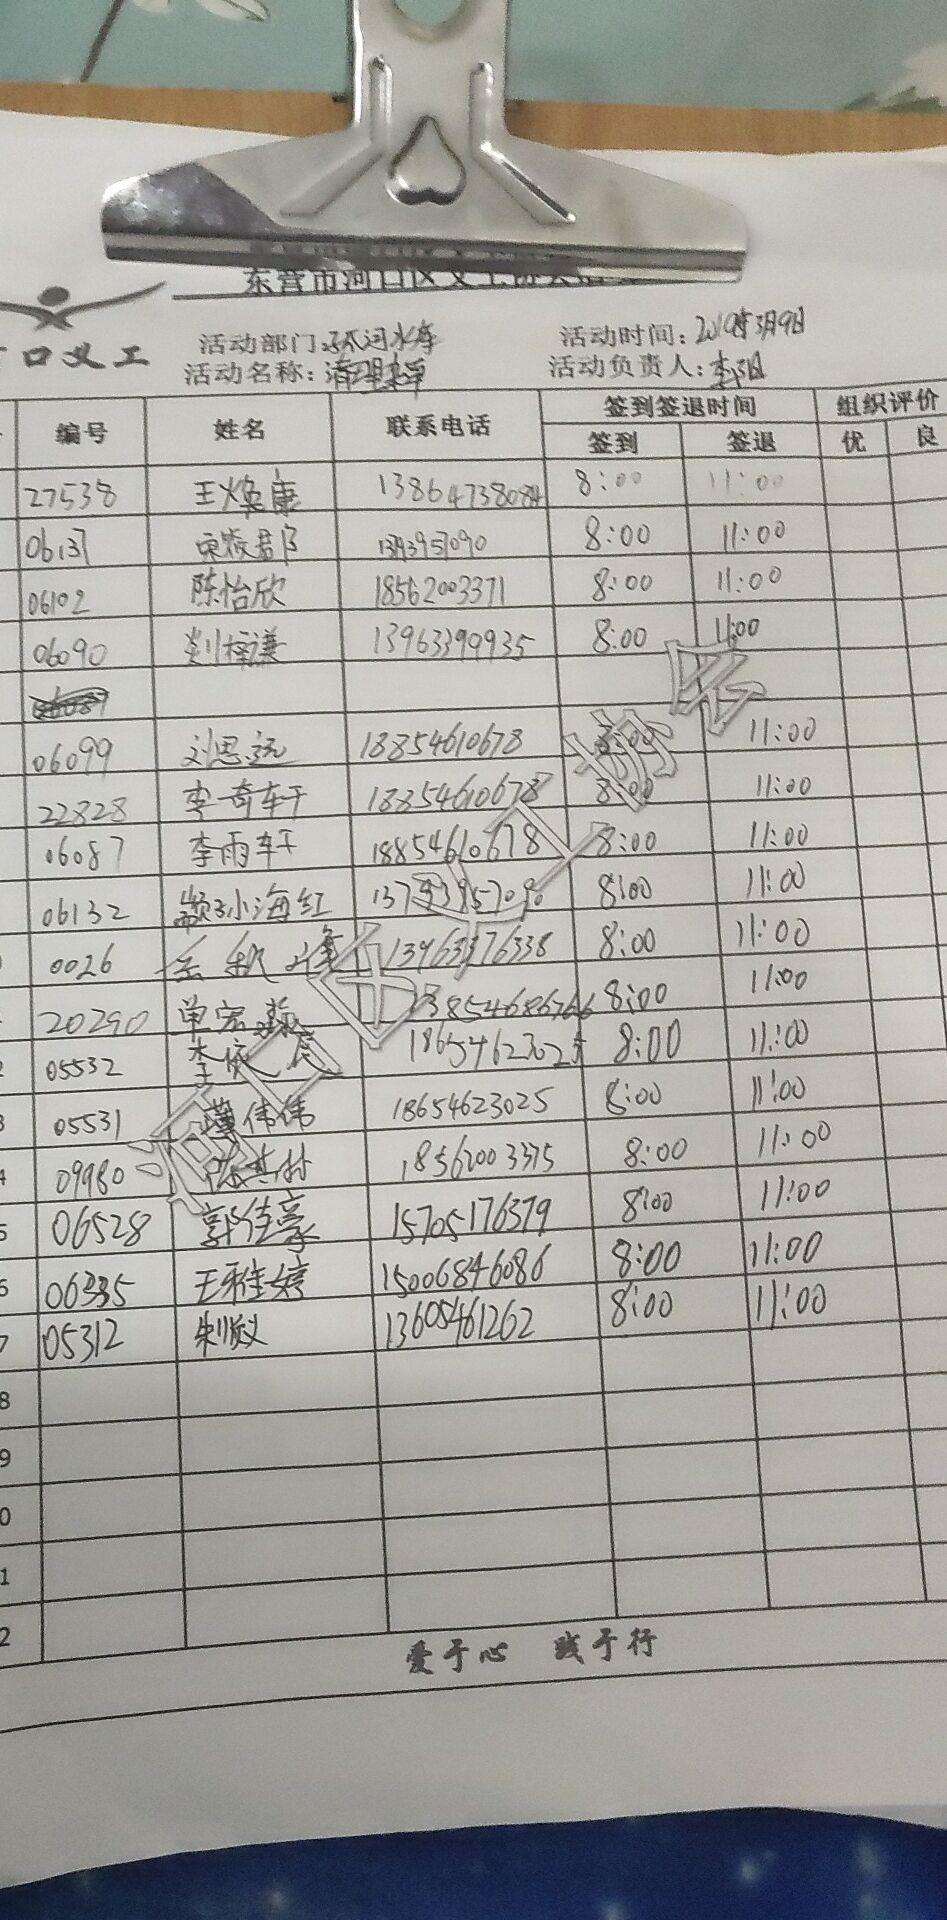 东营市河口区义工协会活
口义工
活动部门: 水库
活动时间: 2019年3月9日
活动名称: 清理杂草
活动负责人: 李阳
编号 姓名 联系电话 签到签退时间 组织评价
签到 签退 优 良
27538 王焕康 13864738084 8:00 11:00
06137 8:00 11:00
06102 陈怡欣 18562003371 8:00 11:00
06090 13963399935 8:00 11:00
06099 刘思远 18854610678 8:00 11:00
22828 李奇轩 18854610678 8:00 11:00
06087 李雨轩 18854610678 8:00 11:00
06132 孙海红 8:00 11:00
0026 13963376338 8:00 11:00
20290 单宏 8:00 11:00
2 05532 李依宸 8:00 11:00
3 05531 伟伟 18654623025 8:00 11:00
4 09980 18562003375 8:00 11:00
5 06528 郭佳豪 15705176379 8:00 11:00
6 06335 王雅婷 15006846086 8:00 11:00
7 05312 13605461262 8:00 11:00
8
9
0
1
2
爱于心 践于行